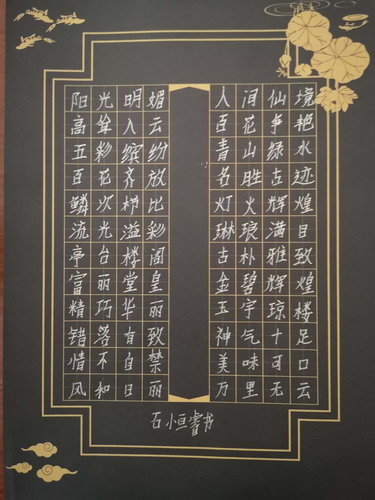 阳光明媚
高耸入云
五彩缤纷
百花齐放
鳞次栉比
流光溢彩
亭台楼阁
富丽堂皇
精巧华丽
错落有致
情不自禁
风和日丽
人间仙境
百花争艳
青山绿水
名胜古迹
灯火辉煌
琳琅满目
古朴雅致
金碧辉煌
玉宇琼楼
神气十足
美味可口
万里无云
石恒睿书